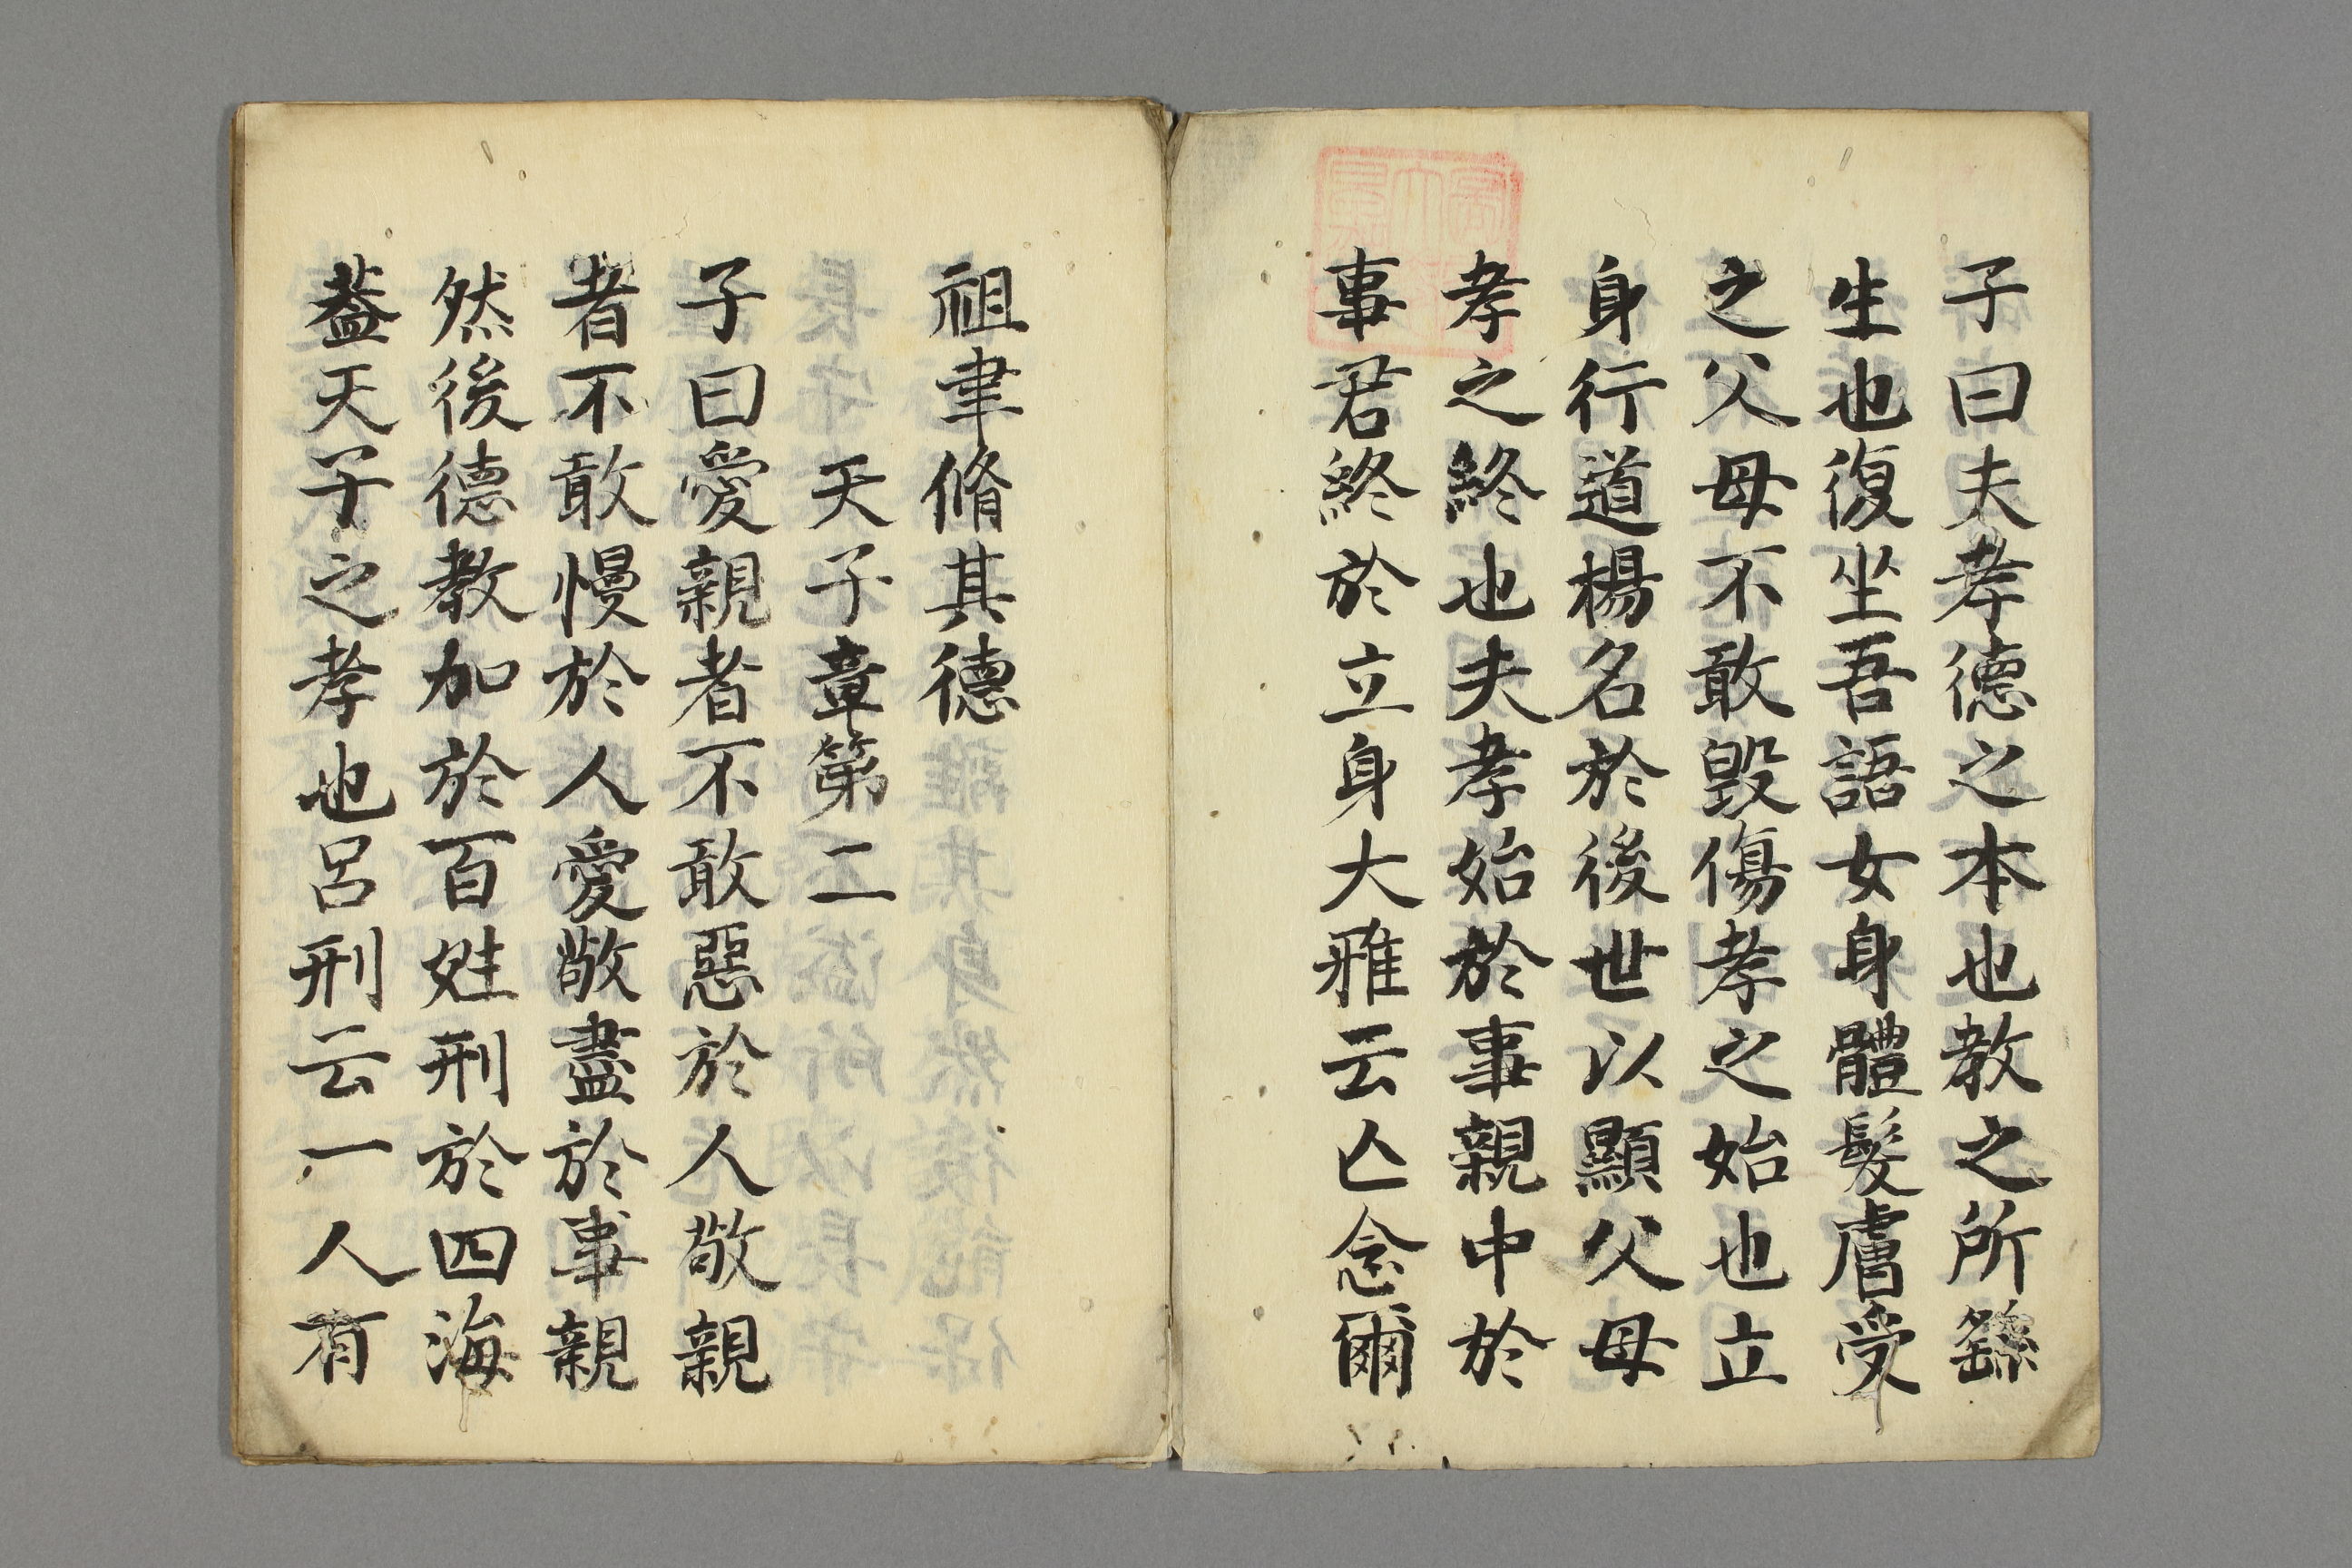 子曰夫孝德之本也教之所繇
生也復坐吾語女身體髮膚受
之父母不敢毀傷孝之始也立
身行道楊名於後世以顯父母
孝之終也夫孝始於事親中於
事君終於立身大雅云亾念爾
祖聿脩其德
天子章第二
子曰愛親者不敢惡於人敬親
者不敢慢於人愛敬盡於事親
然後德教加於百姓刑於四海
葢天子之孝也呂刑云一人有